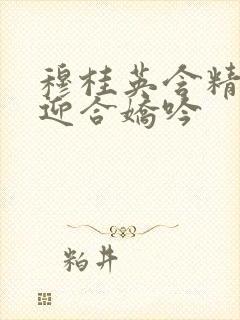 穆桂英含精
迎合嬌吟
粕井